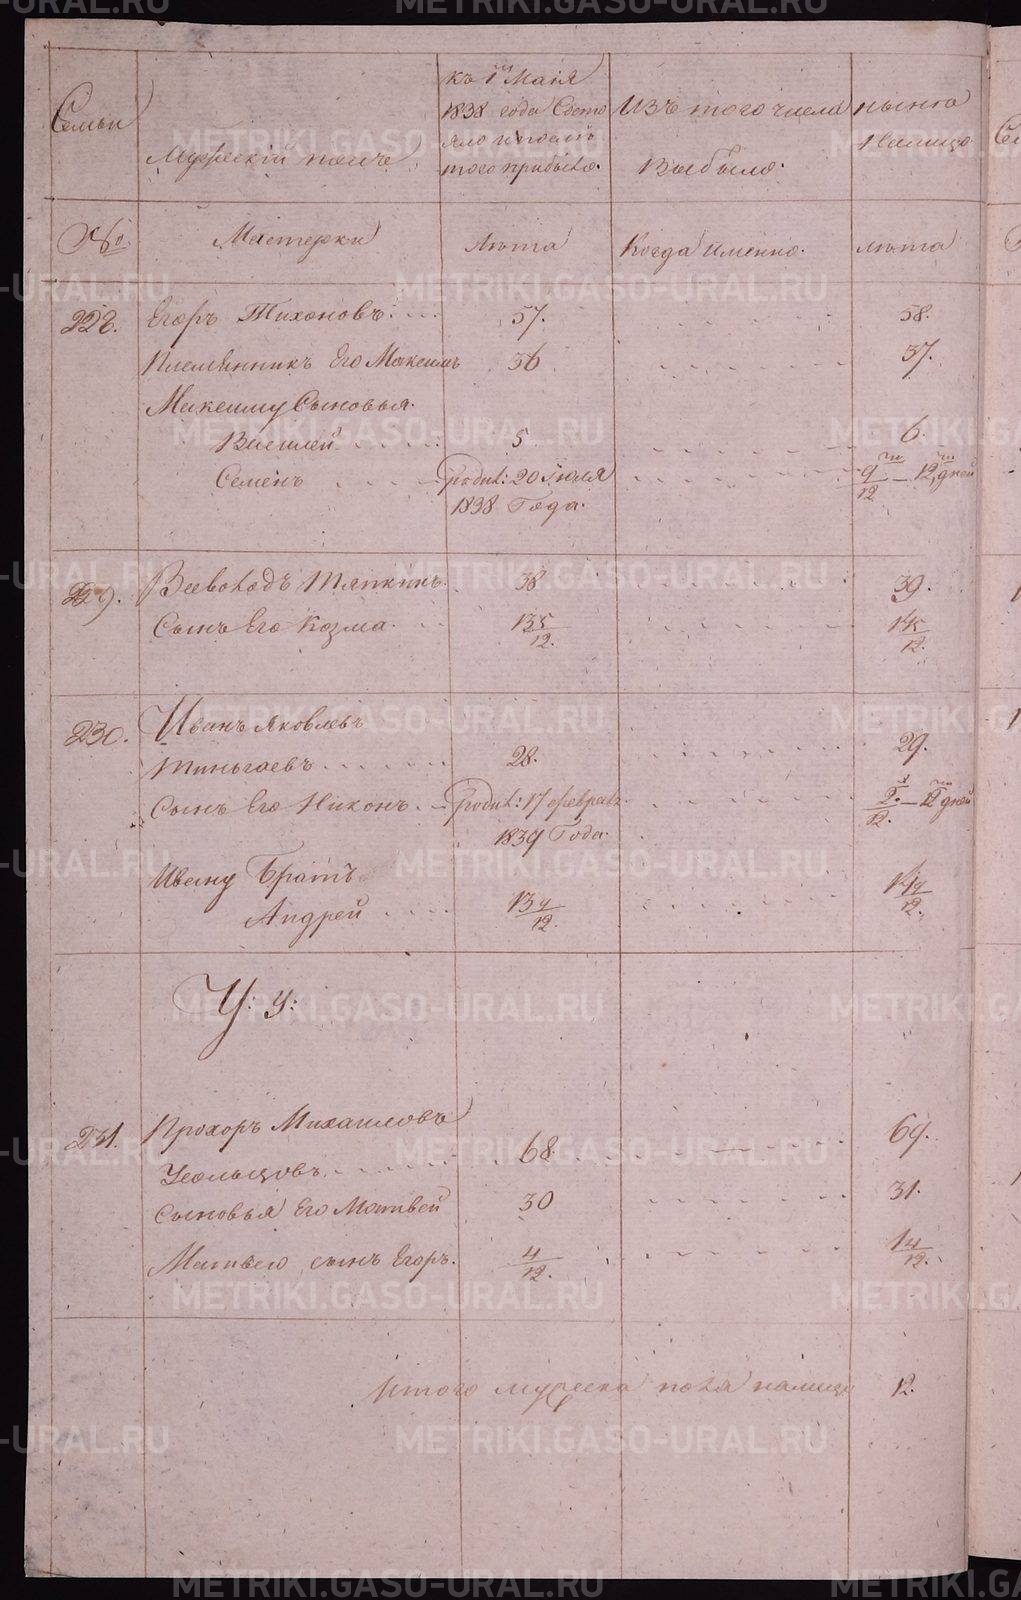 Семьи
Мужескiй полъ
къ 1му Маiя
1838 года Состо
яло и послѣ
того прибыло.
Изъ того числа
Выбыло.
нынѣ
Налицо
№
Мастерки
лѣта
Когда именно.
лѣта
228. Егоръ Тихоновъ. 57. 58.
Племянникъ Его Максимъ 36 37.
Максиму Сыновья.
Василей 5 6.
Семенъ родил: 20 Iюля 9/12 — 12 дней
1838 Года.
229. Всеволодъ Тяпкинъ. 38 39.
Сынъ Его Козма 13 5/12. 14 5/12.
230. Иванъ Яковлевъ
Тиньгаевъ 28. 29.
Сынъ Его Никонъ родил: 17 февраля 2/12. — 12 дней
1839 Года.
Ивану Братъ
Андрей 13 9/12. 14 9/12.
У: у:
231. Прохоръ Михаиловъ 69.
Усольцовъ 68.
Сыновья Его Матвей 30 31.
Матвею сынъ Егоръ. 4/12. 1 4/12.
Итого мужеска пола налицо 12.
METRIKI.GASO-URAL.RU